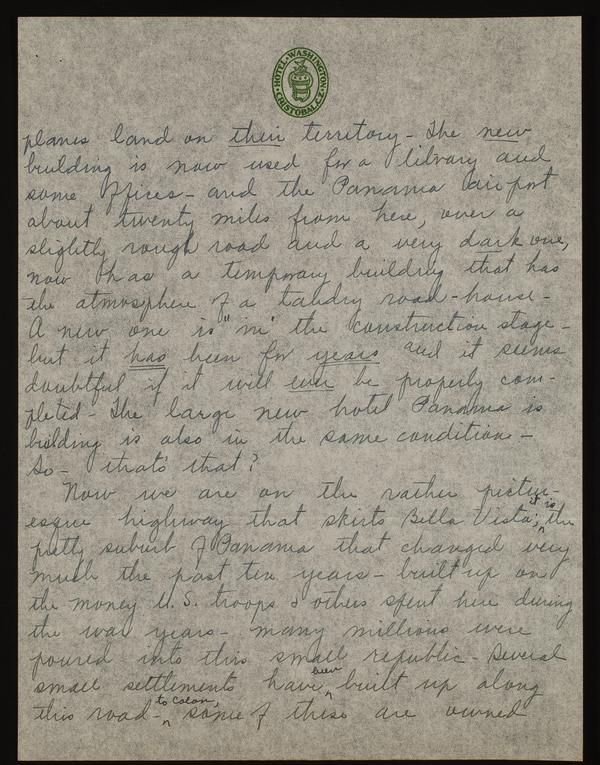 HOTEL · WASHINGTON
· CRISTOBAL, C.Z. ·
planes land on their territory - The new
building is now used for a library and
some offices - and the Panama air port
about twenty miles from here, over a
slightly rough road and a very dark one,
now has a temporary building that has
the atmosphere of a tawdry road-house -
A new one is "in" the construction stage -
but it has been for years and it seems
doubtful if it will ever be properly com-
pleted - The large new hotel Panama is
building is also in the same condition -
So - that's that?
Now we are on the rather pictur-
esque highway that skirts Bella Vista; it is the
pretty suburb of Panama that changed very
much the past ten years - built up on
the money U.S. troops & others spent here during
the war years - many millions were
poured into this small republic - Several
small settlements have been built up along
this road - to Colon, some of these are owned